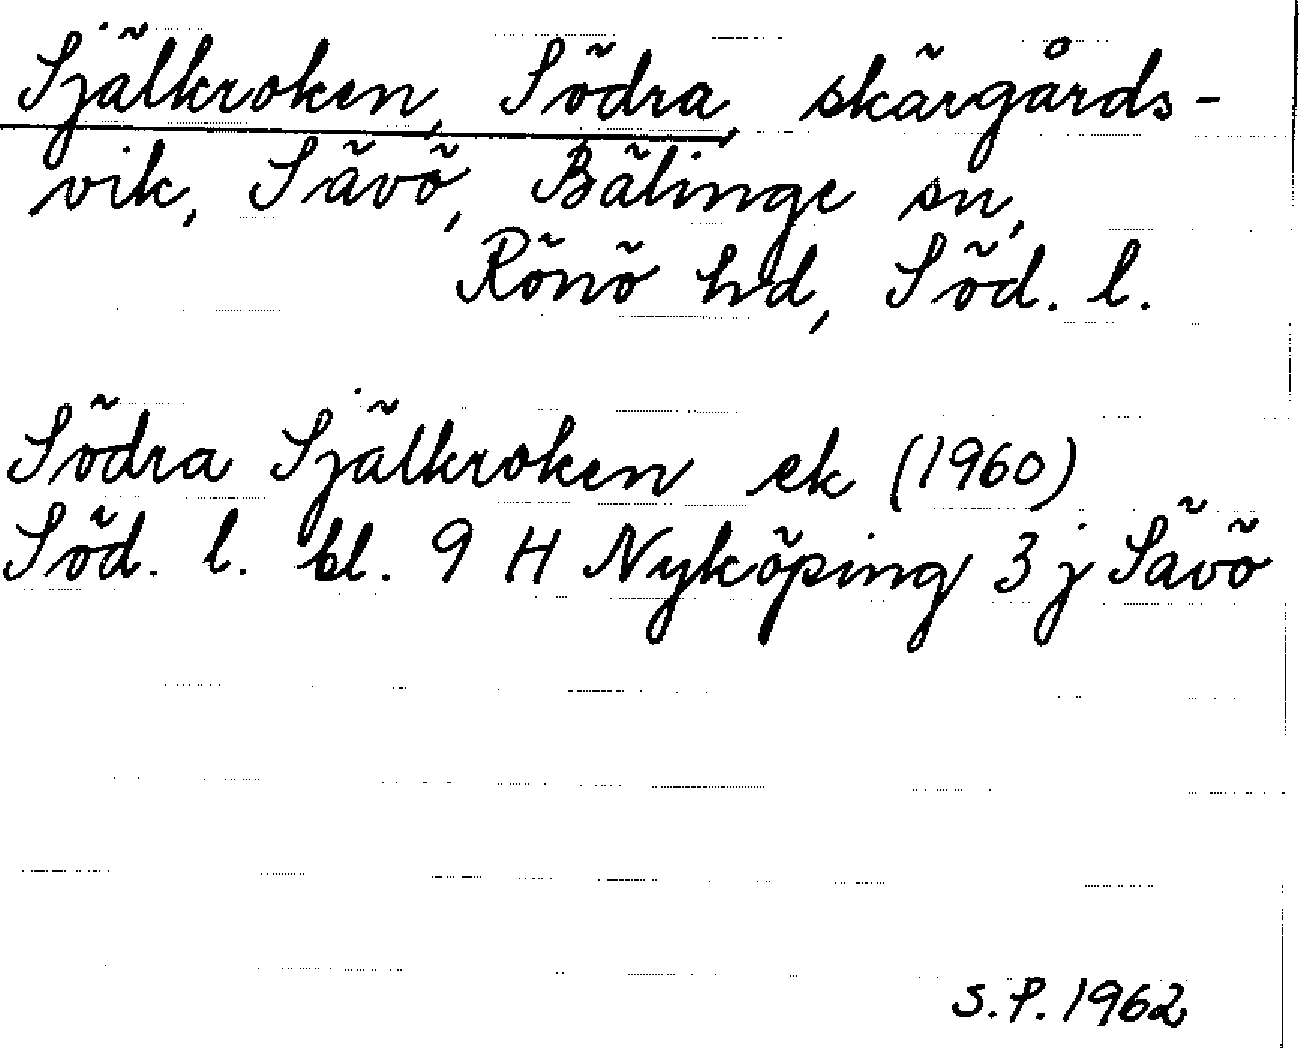 Själkroken, Södra, skärgårds-
vik, Sävö, Bälinge sn,
Rönö hd, Söd. l.
Södra Själkroken ek (1960)
Söd. l. bl. 9 H Nyköping 3 j Sävö
S.P. 1962